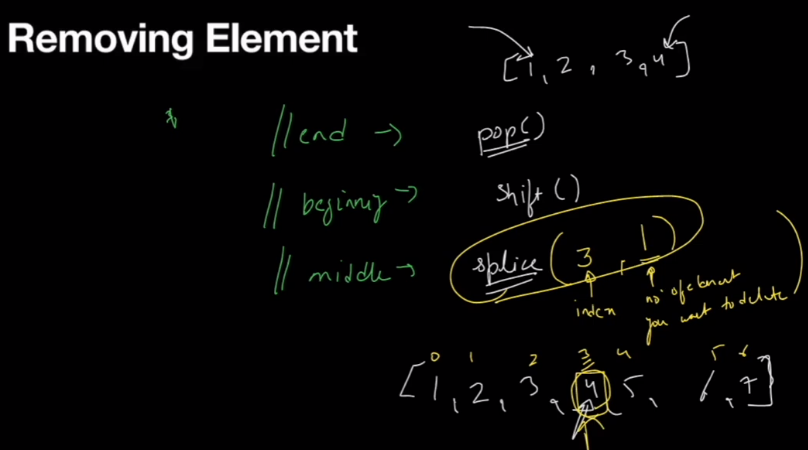 Removing Element
[1, 2, 3, 4]
//end → pop()
// beginning → Shift()
// middle → splice(3, 1)
index
no. of element
you want to delete
0 1 2 3 4 5 6
[1, 2, 3, 4, 5, 6, 7]